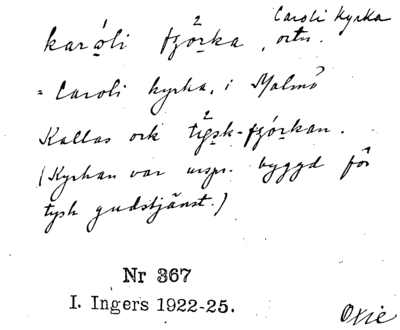 Caroli kyrka
karóli fjórka, ortn.
= Caroli kyrka, i Malmö
Kallas ock tysk-fjórkan.
(Kyrkan var urspr. byggd för
tysk gudstjänst.)
Nr 367
I. Ingers 1922-25.
Oxie